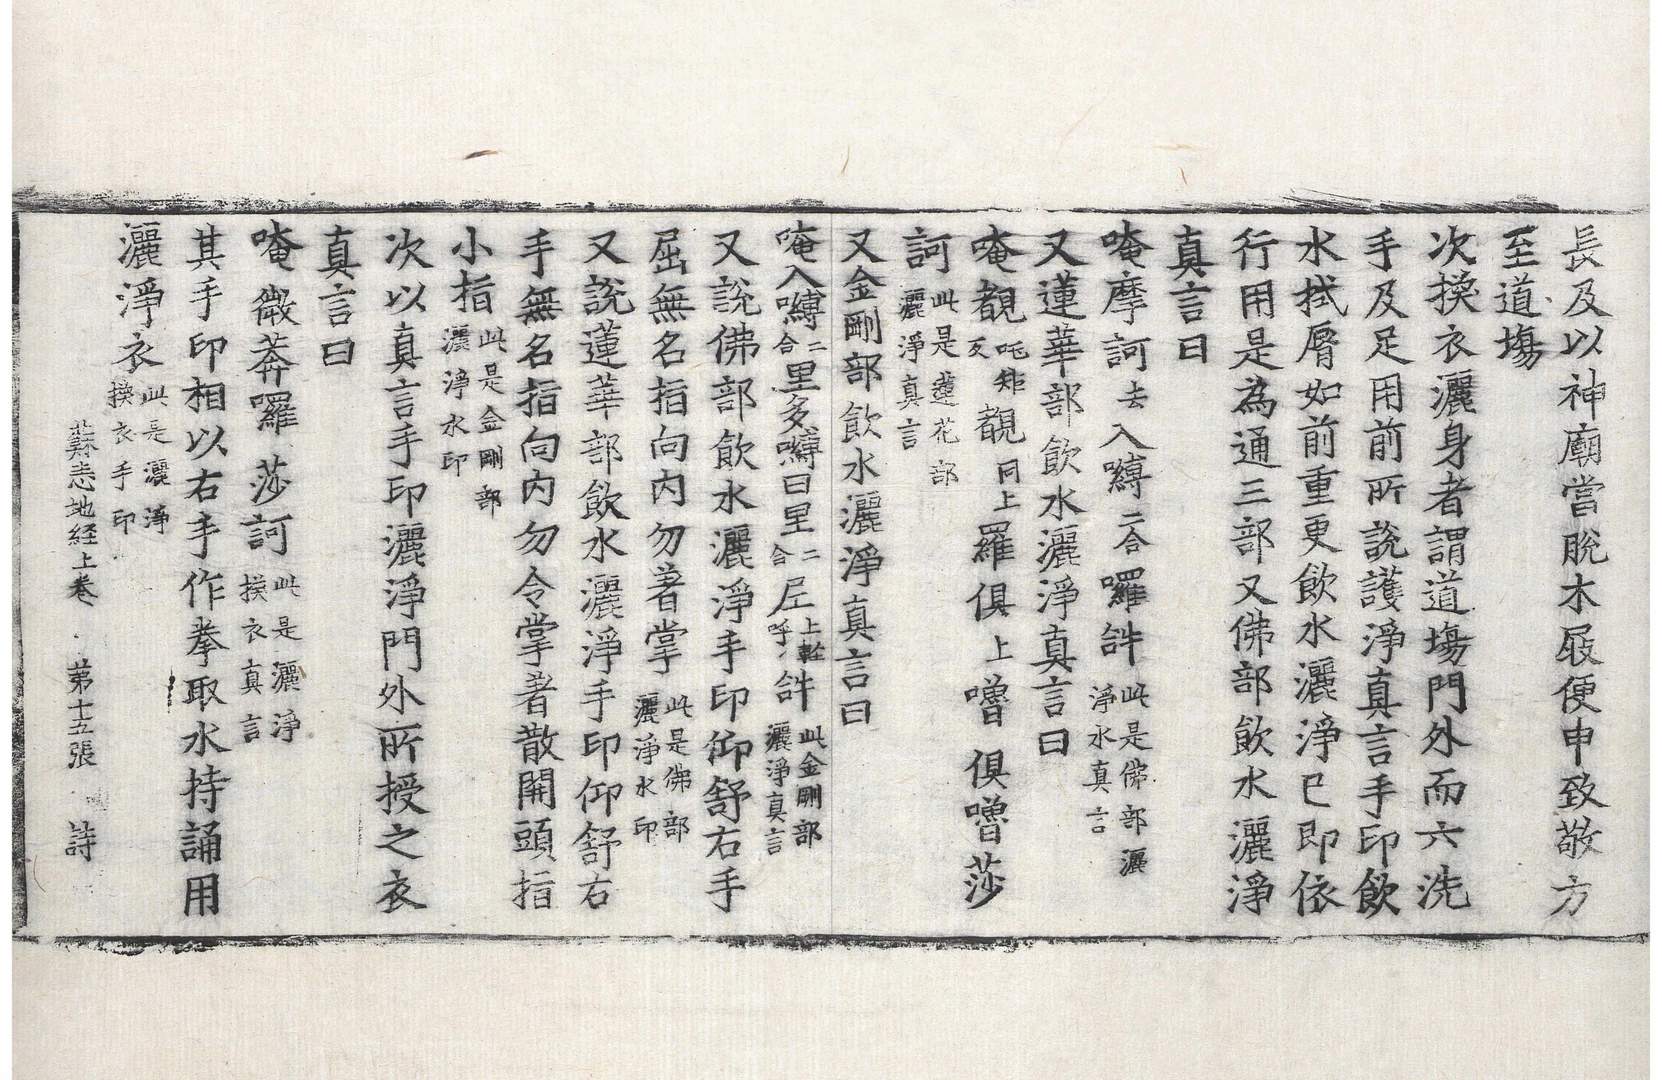 長及以神廟當脫木屐便申致敬方
至道場
次換衣灑身者謂道場門外而六洗
手及足用前所說護淨真言手印飲
水拭脣如前重更飲水灑淨已即依
行用是為通三部又佛部飲水灑淨
真言曰
唵摩訶去入嚩二合囉𤙖此是佛部灑淨水真言
又蓮華部飲水灑淨真言曰
唵覩吒矩反覩同上羅俱上嚕俱嚕莎
訶此是蓮花部灑淨真言
又金剛部飲水灑淨真言曰
唵入嚩二合里多嚩曰里二合𡰱上輕呼𤙖此金剛部灑淨真言
又說佛部飲水灑淨手印仰舒右手
屈無名指向內勿著掌此是佛部灑淨水印
又說蓮華部飲水灑淨手印仰舒右
手無名指向內勿令掌著散開頭指
小指此是金剛部灑淨水印
次以真言手印灑淨門外所授之衣
真言曰
唵微莽囉莎訶此是灑淨換衣真言
其手印相以右手作拳取水持誦用
灑淨衣此是灑淨換衣手印
蘇悉地経上卷 第十五張 詩